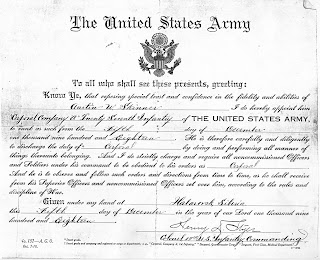 The United States Army
To all who shall see these presents, greeting:
Know Ye, that reposing special trust and confidence in the fidelity and abilities of
Austin W. Skinner I do hereby appoint him
Corporal Company "D" Twenty Seventh Infantry OF THE UNITED STATES ARMY,
to rank as such from the Fifth day of December
one thousand nine hundred and Eighteen He is therefore carefully and diligently
to discharge the duty of Corporal by doing and performing all manner of
things thereunto belonging. And I do strictly charge and require all noncommissioned Officers
and Soldiers under his command to be obedient to his orders as Corporal
And he is to observe and follow such orders and directions from time to time, as he shall receive
from his Superior Officers and noncommissioned Officers set over him, according to the rules and
discipline of War.
Given under my hand at Habarovsk Siberia
this Fifth day of December in the year of our Lord one thousand
nine hundred and Eighteen
Henry
U.S. Infantry Commanding